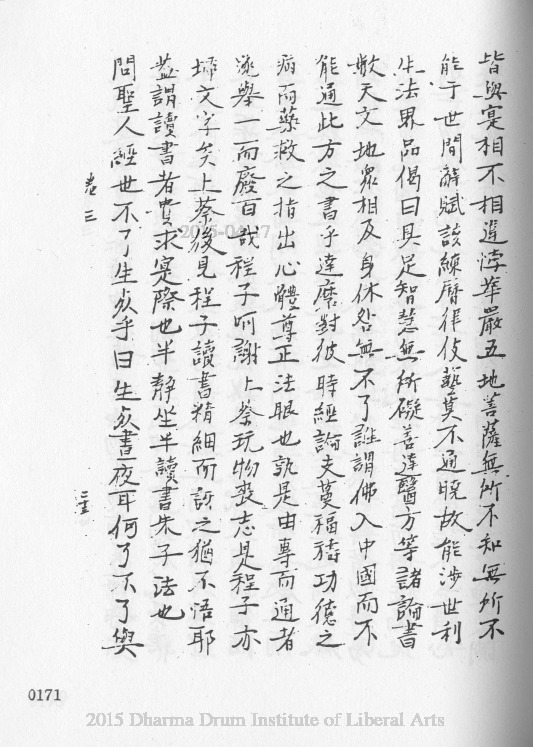 皆與寔相不相違悖華嚴五地菩薩無所不知無所不
能于世間辭賦談練曆律伎藝莫不通曉故能涉世利
生法界品偈曰具足智慧無所礙善達醫方等諸論書
數天文地眾相及身休咎無不了誰謂佛入中國而不
能通此方之書乎達磨對彼時經論支蔓福禱功德之
病而藥救之指出心體尊正法眼也孰是由專而通者
漫舉一而廢百哉程子呵謝上蔡玩物喪志是程子亦
埽文字矣上蔡後見程子讀書精細而訝之猶不悟耶
葢謂讀書者貴求寔際也半靜坐半讀書朱子法也
問聖人經世不了生死乎曰生死晝夜耳何了不了與
卷三
0171
2015-04-27
2015 Dharma Drum Institute of Liberal Arts